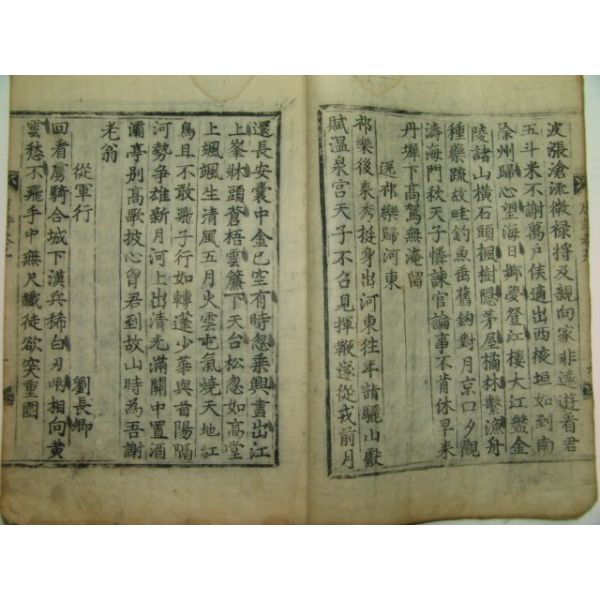 波張滄流微祿將及親向家非遠遊看君
五斗米不謝萬戶侯適出西掖垣如到南
徐州歸心望海日鄉夢登江樓大江盤金
陵諸山橫石頭楓樹隱茅屋橘林繫漁舟
種藥疏故畦釣魚垂舊鉤對月京口夕觀
濤海門秋天子憐諫官論事不肯休早來
丹墀下高駕無淹留
送祁樂歸河東
祁樂後來秀挺身出河東往年詣驪山獻
賦溫泉宮天子不召見揮鞭遂從戎前月
還長安囊中金已空有時忽乘興畫出江
上峯牀頭蒼梧雲簾下天台松忽如高堂
上颯颯生清風五月火雲屯氣燒天地紅
鳥且不敢飛子行如轉蓬少華與首陽隔
河勢爭雄新月河上出清光滿關中置酒
灞亭別高歌披心胷君到故山時為吾謝
老翁
從軍行 劉長卿
回看虜騎合城下漢兵稀白刃兩相向黃
雲愁不飛手中無尺鐵徒欲突重圍